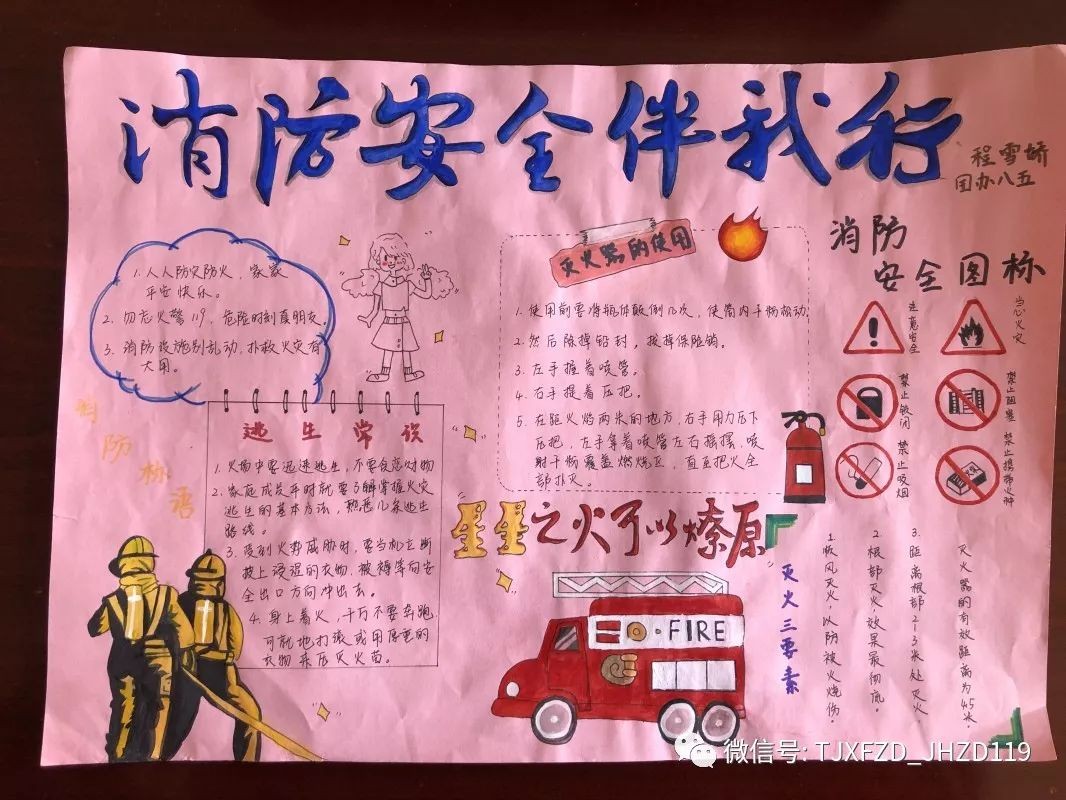 消防安全伴我行
程雪娇
团办八五
1.人人防灾防火，家家
平安快乐。
2.勿忘火警119，危险时刻真朋友。
3.消防设施别乱动，扑救火灾有
大用。
消防标语
逃生常识
1.火场中要迅速逃生，不要贪恋财物
2.家庭成员平时就要了解掌握火灾
逃生的基本方法，熟悉几条逃生
路线。
3.受到火势威胁时，要当机立断
披上浸湿的衣物、被褥等向安
全出口方向冲出去。
4.身上着火，千万不要奔跑
可就地打滚或用厚重的
衣物来压灭火苗。
灭火器的使用
1.使用前要将瓶体颠倒几次，使筒内干粉松动
2.然后除掉铅封，拔掉保险销。
3.左手握着喷管。
4.右手提着压把。
5.在距火焰两米的地方，右手用力压下
压把，左手拿着喷管左右摇摆，喷
射干粉覆盖燃烧区，直至把火全
部扑灭。
星星之火可以燎原
FIRE
消防
安全图标
注意安全
当心火灾
禁止锁闭
禁止阻塞
禁止吸烟
禁止携带火种
灭火三要素
1.顺风灭火，以防被火烧伤。
2.根部灭火，效果最彻底。
3.距离根部2-3米处灭火，
灭火器的有效距离为4.5米。
微信号: TJXFZD_JHZD119